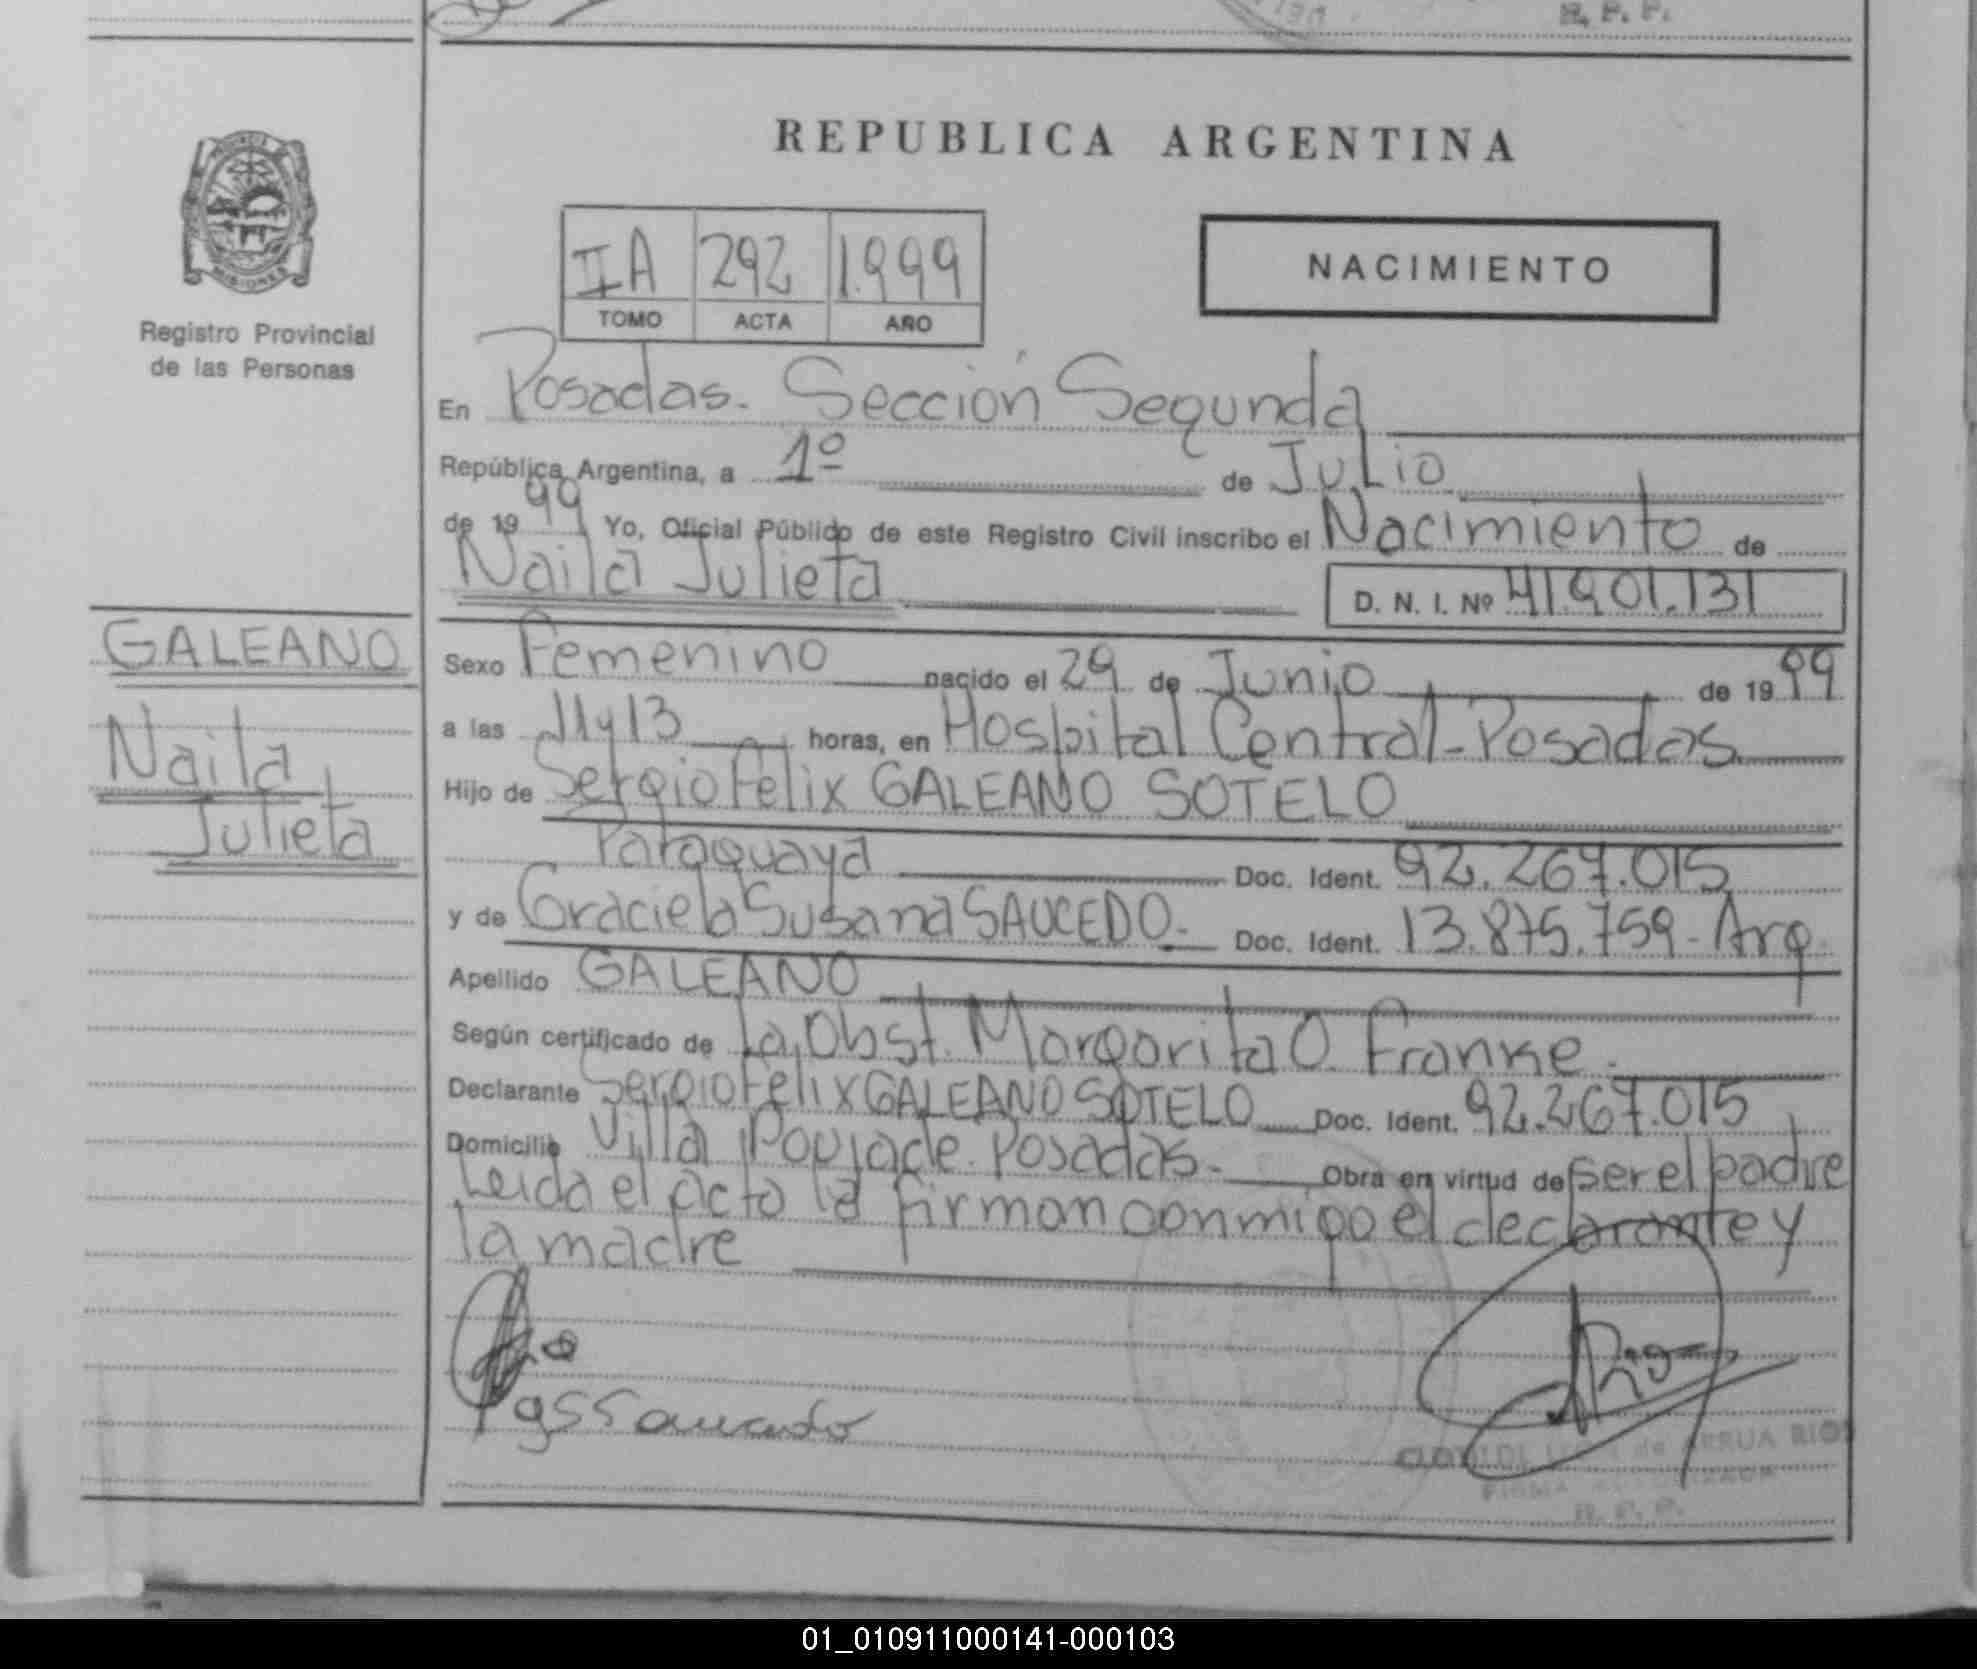 R. P. P.
REPUBLICA ARGENTINA
MISIONES
Registro Provincial
de las Personas
IIA 292 1.999
TOMO ACTA AÑO
NACIMIENTO
En Posadas. Sección Segunda
República Argentina, a 1º de Julio
de 1999 Yo, Oficial Público de este Registro Civil inscribo el Nacimiento de
Naila Julieta D. N. I. Nº 41.901.131
GALEANO
Naila
Julieta
Sexo Femenino nacido el 29 de Junio de 1999
a las 11y13 horas, en Hospital Central-Posadas
Hijo de Sergio Felix GALEANO SOTELO
Paraguaya Doc. Ident. 92.267.015
y de Graciela Susana SAUCEDO.- Doc. Ident. 13.875.759-Arg.
Apellido GALEANO
Según certificado de La Obst. Margarita O. Franke.
Declarante Sergio Felix GALEANO SOTELO Doc. Ident. 92.267.015
Domicilio Villa Poujade. Posadas.- Obra en virtud de ser el padre
Leida el acto la firman conmigo el declarante y
la madre
gssaucedo
de ARRUA RIOS
FIRMA AUTORIZADA
R. P. P.
01_010911000141-000103